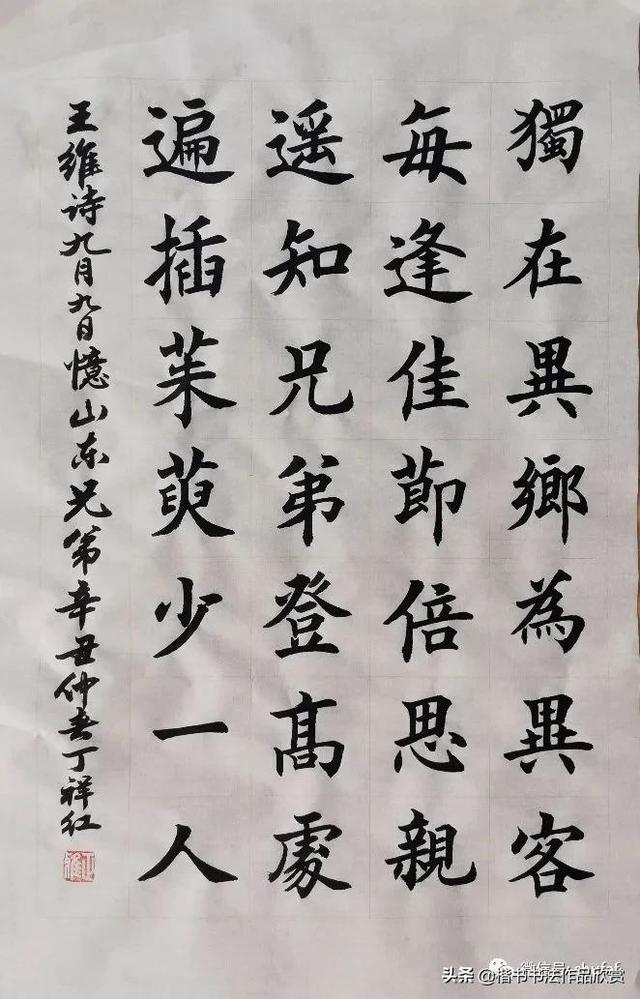 獨在異鄉為異客
每逢佳莭倍思親
遥知兄弟登髙處
遍插茱萸少一人
王維诗九月九日憶山东兄弟辛丑仲春丁祥红
微信号
头条 @楷书书法作品欣赏